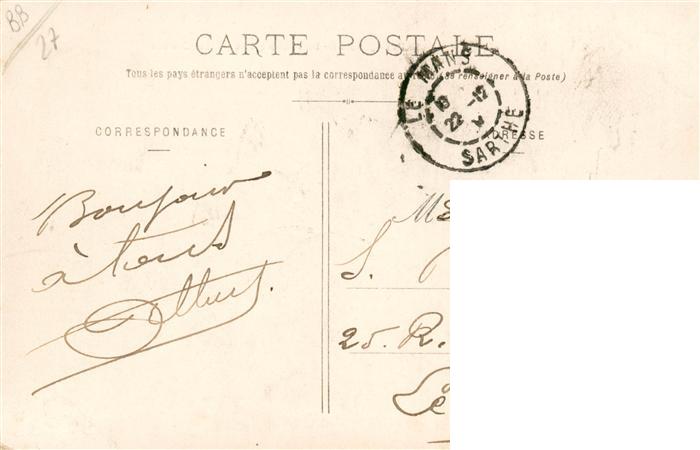 BB
27
CARTE POSTALE
Tous les pays étrangers n'acceptent pas la correspondance au (se renseigner à la Poste)
LE MANS
22 -12
SARTHE
CORRESPONDANCE
ADRESSE
Bonjour
à tous
Albert.
S.
25. R.